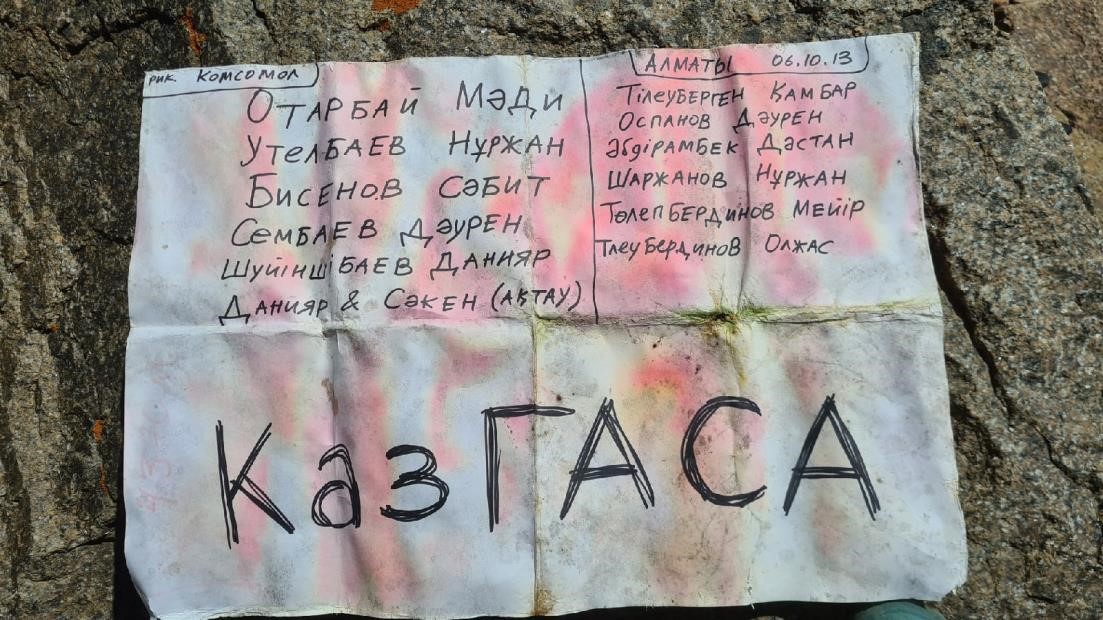 рик. Комсомол
Отарбай Мәди
Утелбаев Нұржан
Бисенов Сәбит
Сембаев Дәурен
Шуйіншібаев Данияр
Данияр & Сәкен (Ақтау)
Алматы 06.10.13
Тілеуберген Қамбар
Оспанов Дәурен
Әбдірамбек Дәстан
Шаржанов Нұржан
Төлепбердинов Мейір
Тлеубердинов Олжас
КазГАСА